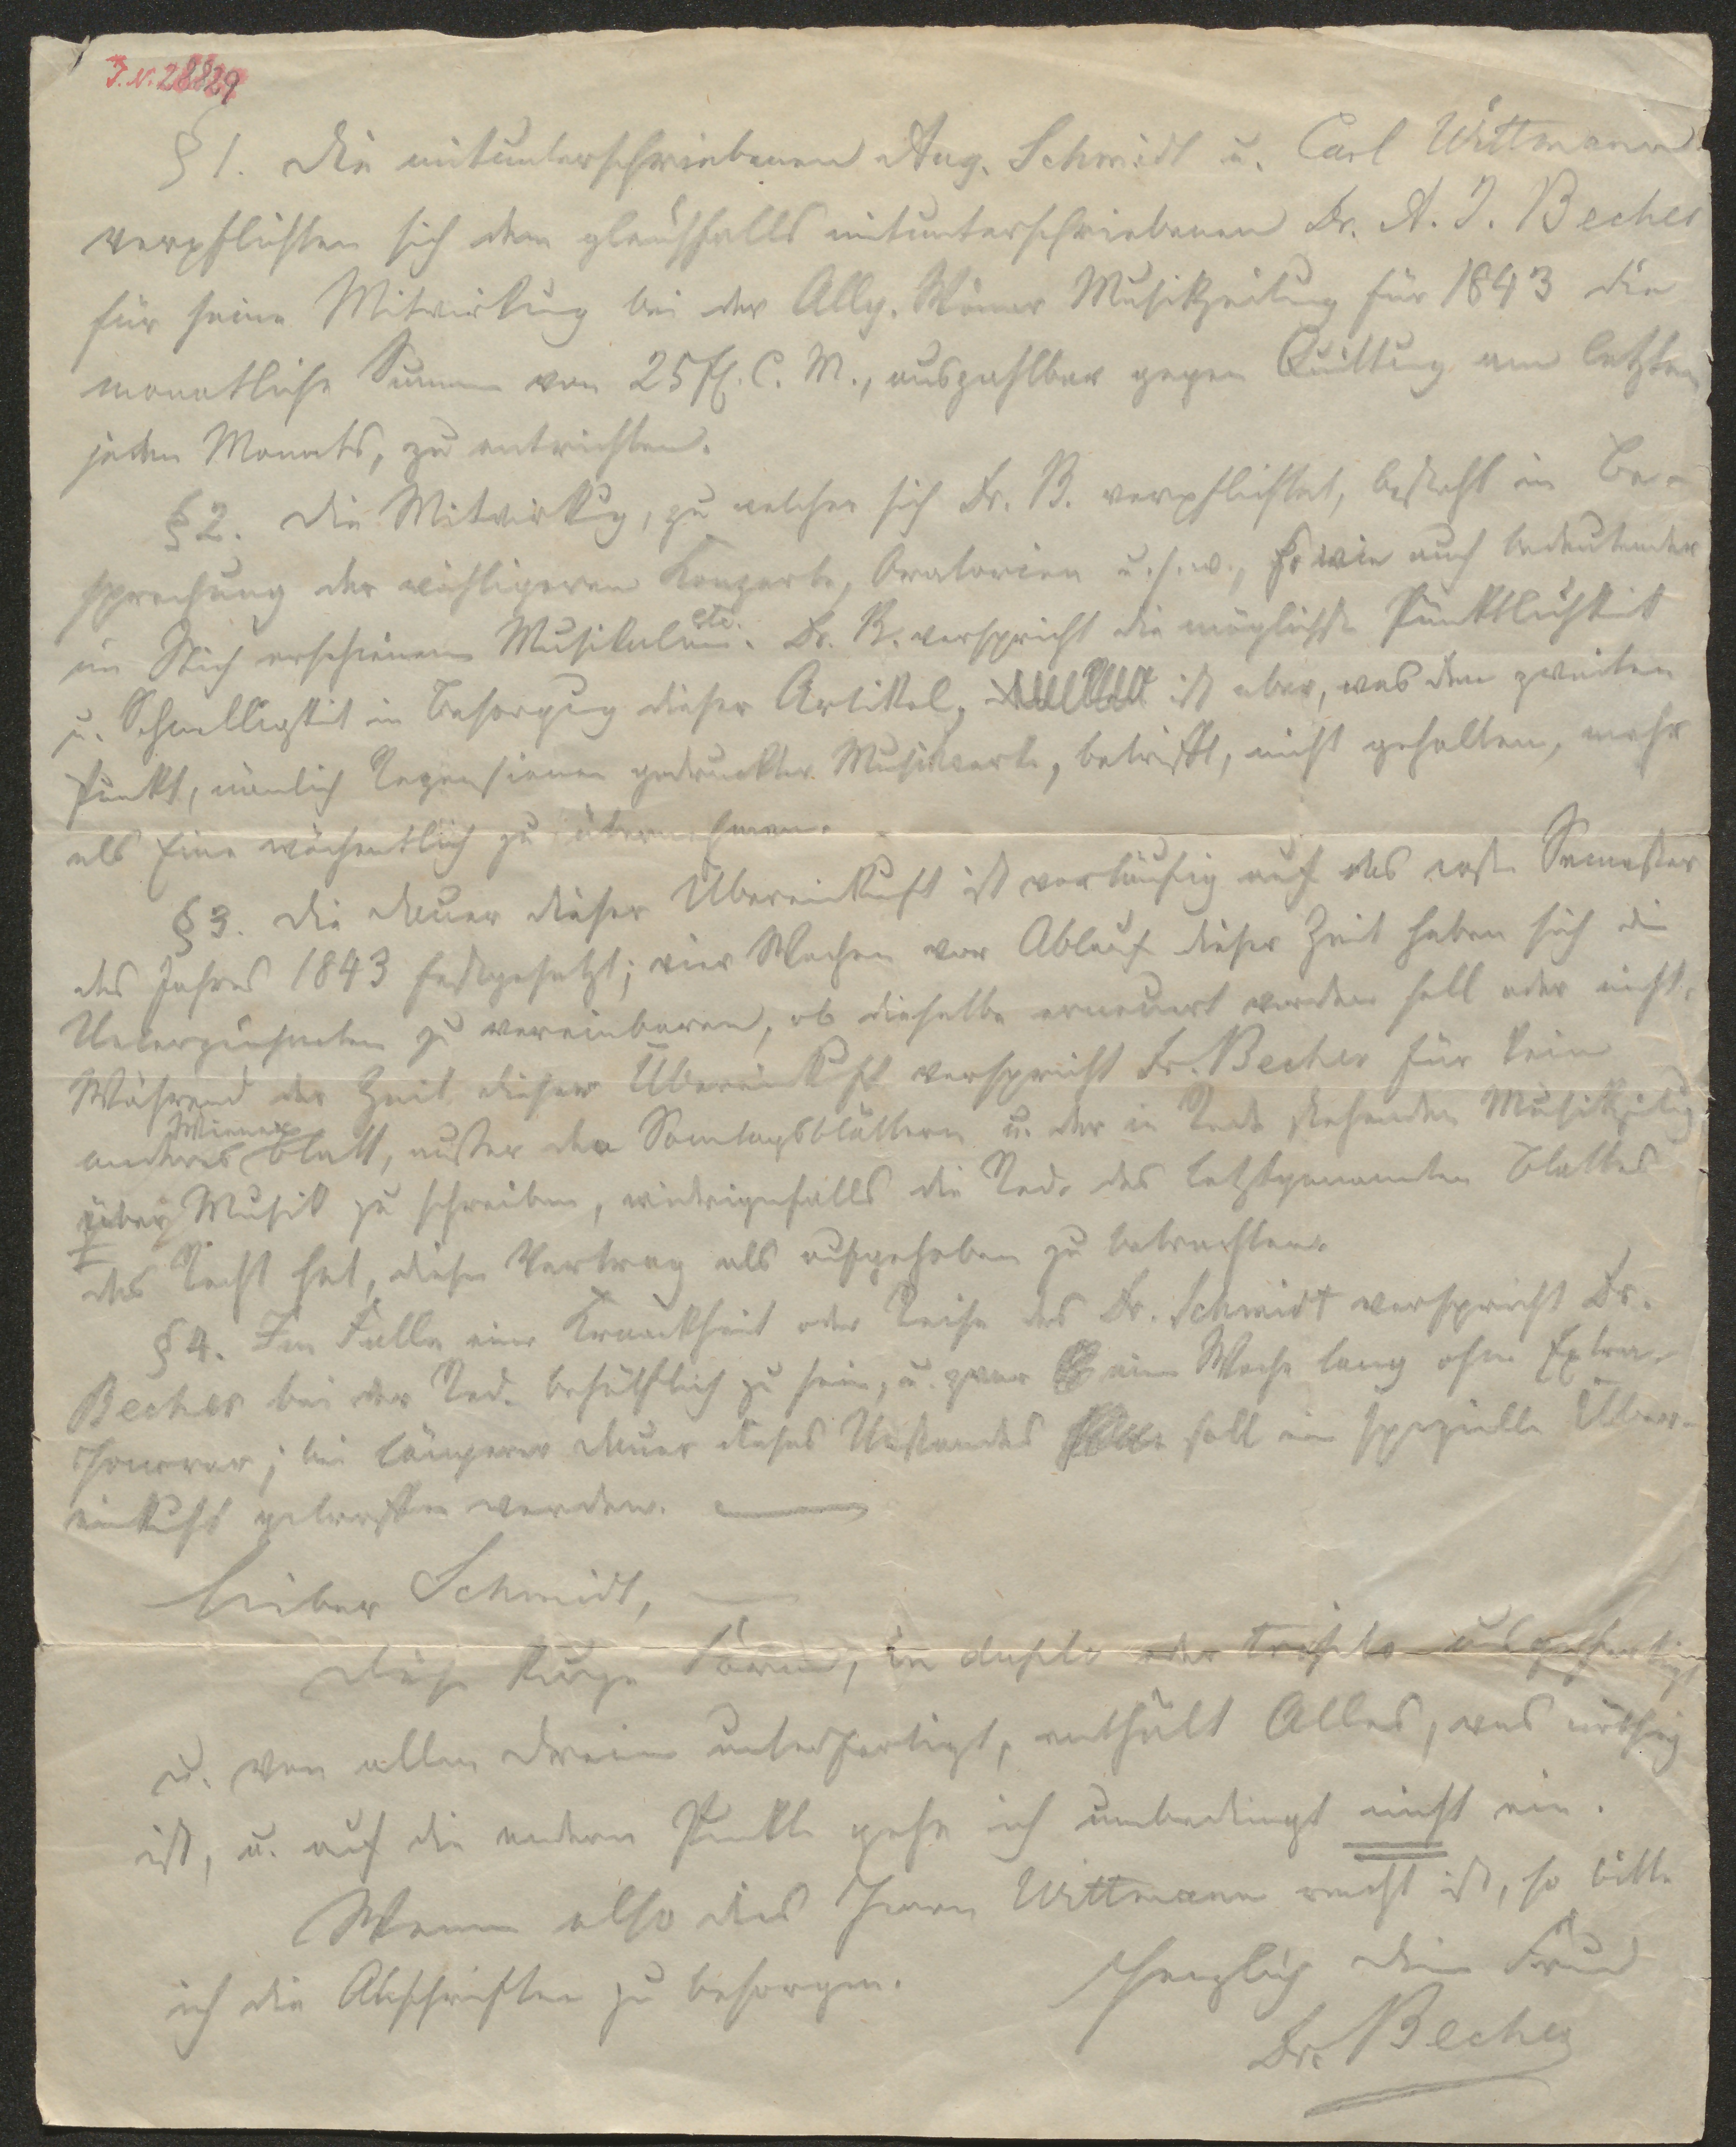 J. N. 28829
§ 1. Die mitunterschriebenen Aug. Schmidt u. Carl Wittmann
verpflichten sich dem gleichfalls mitunterschriebenen Dr. A. J. Becher
für seine Mitwirkung bei der Allg. Wiener Musikzeitung für 1843 die
monatliche Summe von 25 fl. C. M., auszahlbar gegen Quittung am letzten
jeden Monats, zu entrichten.
§ 2. Die Mitwirkg, zu welcher sich Dr. B. verpflichtet, besteht in Be-
sprechung der wichtigeren Konzerte, Oratorien u. s. w., so wie auch bedeutender
im Stich erschienenen Musikalien etc. Dr. B. verspricht die möglichste Pünktlichkeit
u. Schnelligkeit in Besorgung dieser Artikel, ist aber, was den zweiten
Punkt, nämlich Rezensionen gedruckter Musikwerke, betrifft, nicht gehalten, mehr
als Eine wöchentlich zu übernehmen.
§ 3. Die Dauer dieser Übereinkunft ist vorläufig auf das erste Semester
des Jahres 1843 festgesetzt; vier Wochen vor Ablauf dieser Zeit haben sich die
Unterzeichneten zu vereinbaren, ob dieselbe erneuert werden soll oder nicht.
Während der Zeit dieser Übereinkunft verspricht Dr. Becher für kein
anderes Wiener Blatt, außer den Sonntagsblättern u. der in Rede stehenden Musikzeitug
über Musik zu schreiben, widrigenfalls die Red. des letztgenannten Blattes
das Recht hat, diesen Vertrag als aufgehoben zu betrachten.
§ 4. Im Falle einer Krankheit oder Reise des Dr. Schmidt verspricht Dr.
Becher bei der Red. behülflich zu sein, u. zwar eine Woche lang ohne Extra-
honorar; bei längerer Dauer dieses Umstandes soll eine spezielle Über-
einkunft getroffen werden.
Lieber Schmidt,
Diese kurze Form, in duplo oder triplo ausgefertigt
u. von allen Dreien unterfertigt, enthält Alles, was nöthig
ist, u. auf die andern Punkte gehe ich unbedingt nicht ein.
Wenn also dies Herrn Wittmann recht ist, so bitte
ich die Abschriften zu besorgen.
Herzlich Dein Freund
Dr. Becher